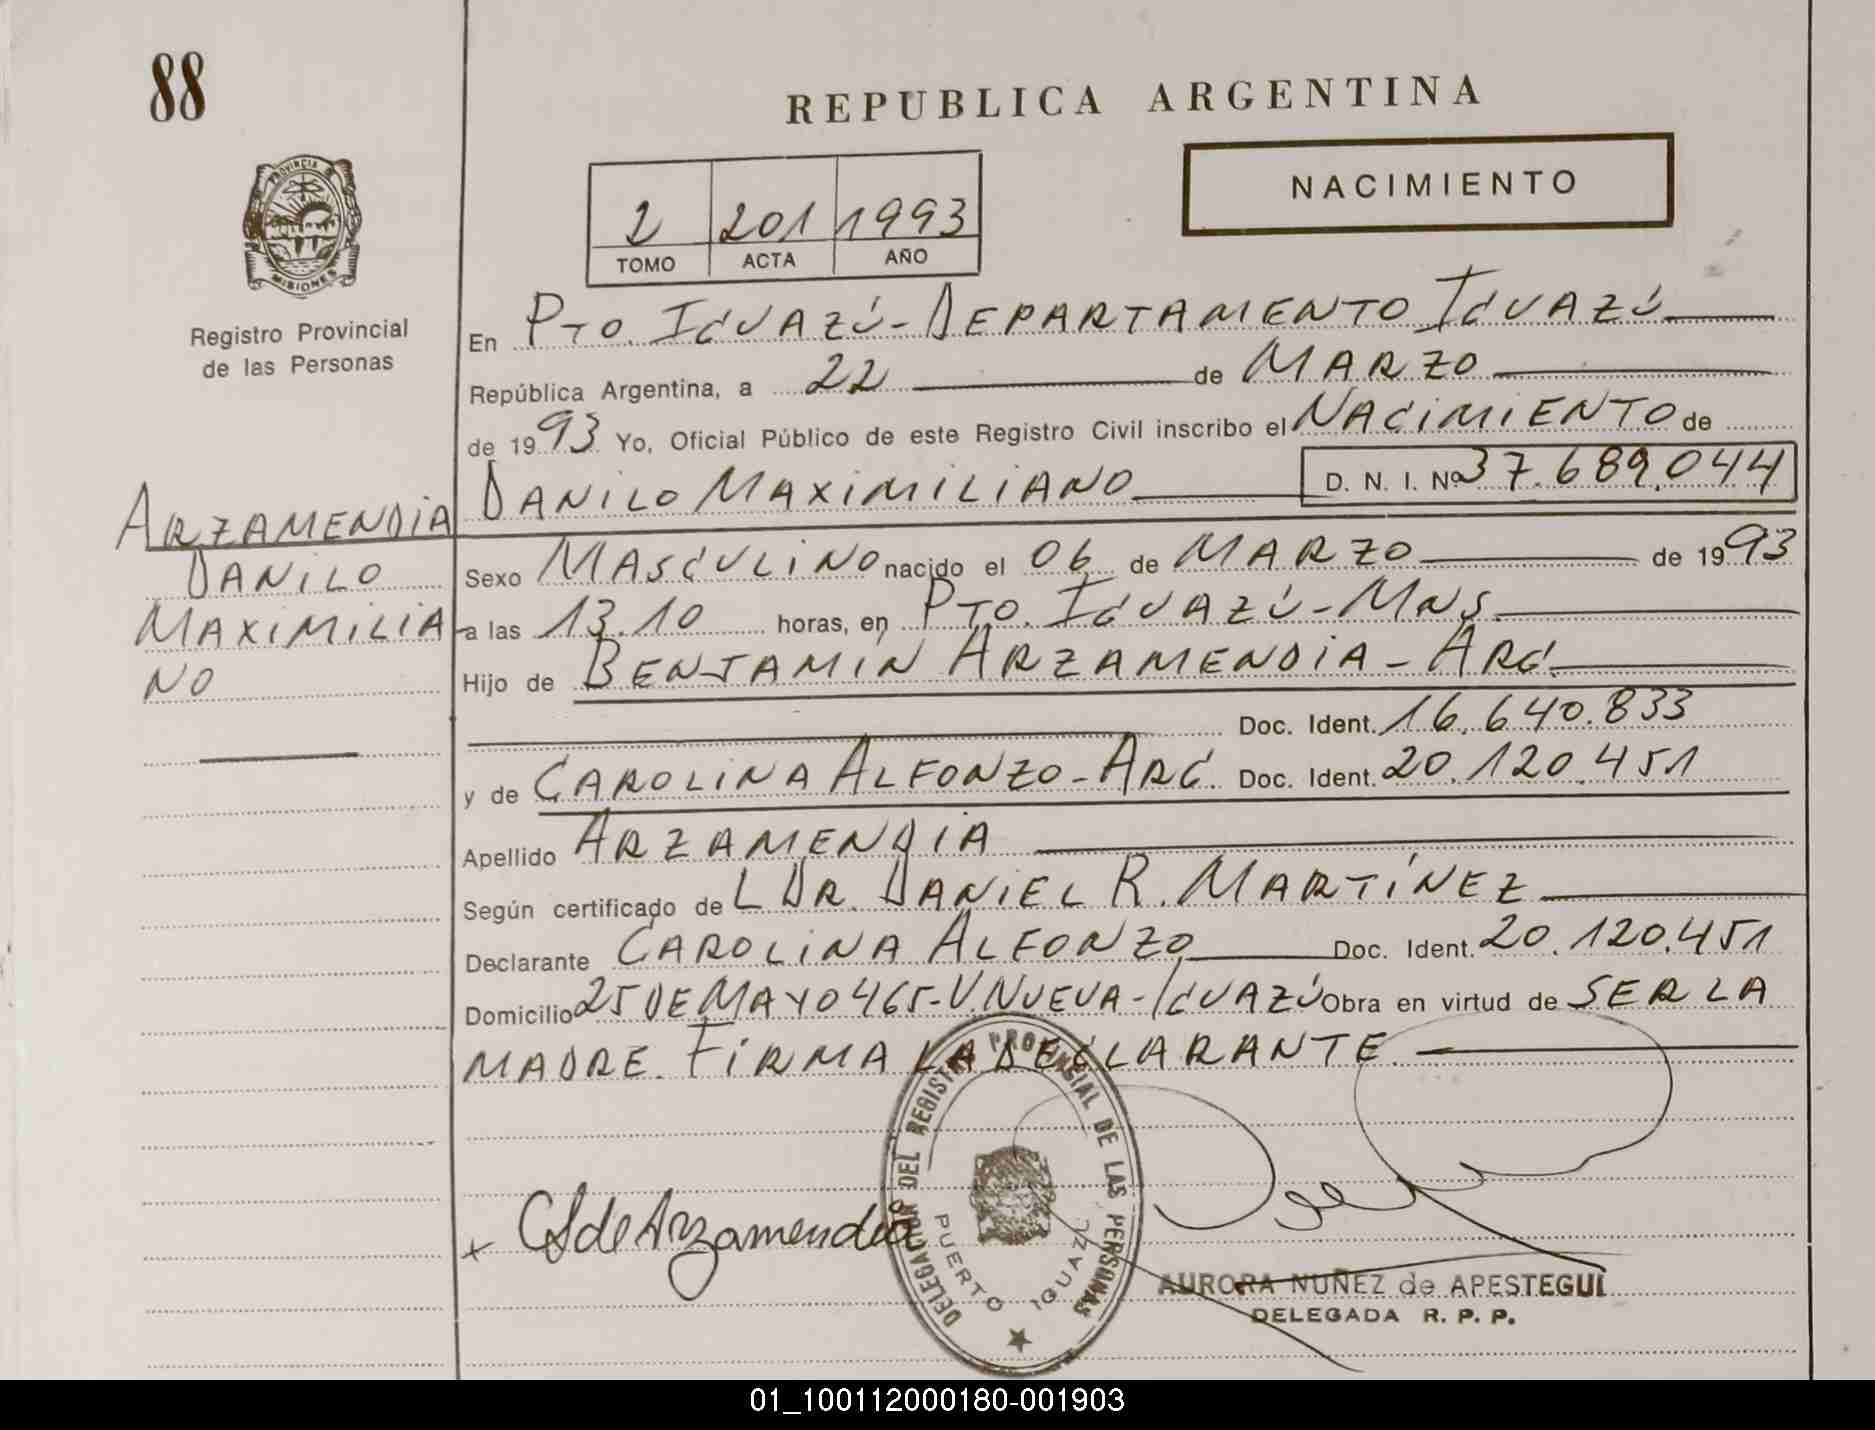 88
REPUBLICA ARGENTINA
NACIMIENTO
2 201 1993
TOMO ACTA AÑO
PROVINCIA DE MISIONES
Registro Provincial
de las Personas
En Pto. Iguazú - Departamento Iguazú
República Argentina, a 22 de Marzo
de 1993 Yo, Oficial Público de este Registro Civil inscribo el Nacimiento de
Danilo Maximiliano D. N. I. Nº 37.689.044
Arzamendia
Danilo
Maximilia
no
Sexo Masculino nacido el 06 de Marzo de 1993
a las 13.10 horas, en Pto. Iguazú - Mns.
Hijo de Benjamín Arzamendia - Arg.
Doc. Ident. 16.640.833
y de Carolina Alfonzo - Arg. Doc. Ident. 20.120.451
Apellido Arzamendia
Según certificado de L Dr. Daniel R. Martínez
Declarante Carolina Alfonzo Doc. Ident. 20.120.451
Domicilio 25 de Mayo 465 - V. Nueva - Iguazú Obra en virtud de ser la
madre. Firma la declarante.
DELEGACION DEL REGISTRO PROVINCIAL DE LAS PERSONAS
PUERTO IGUAZU
x CA de Arzamendia
AURORA NUÑEZ de APESTEGUI
DELEGADA R. P. P.
01_100112000180-001903